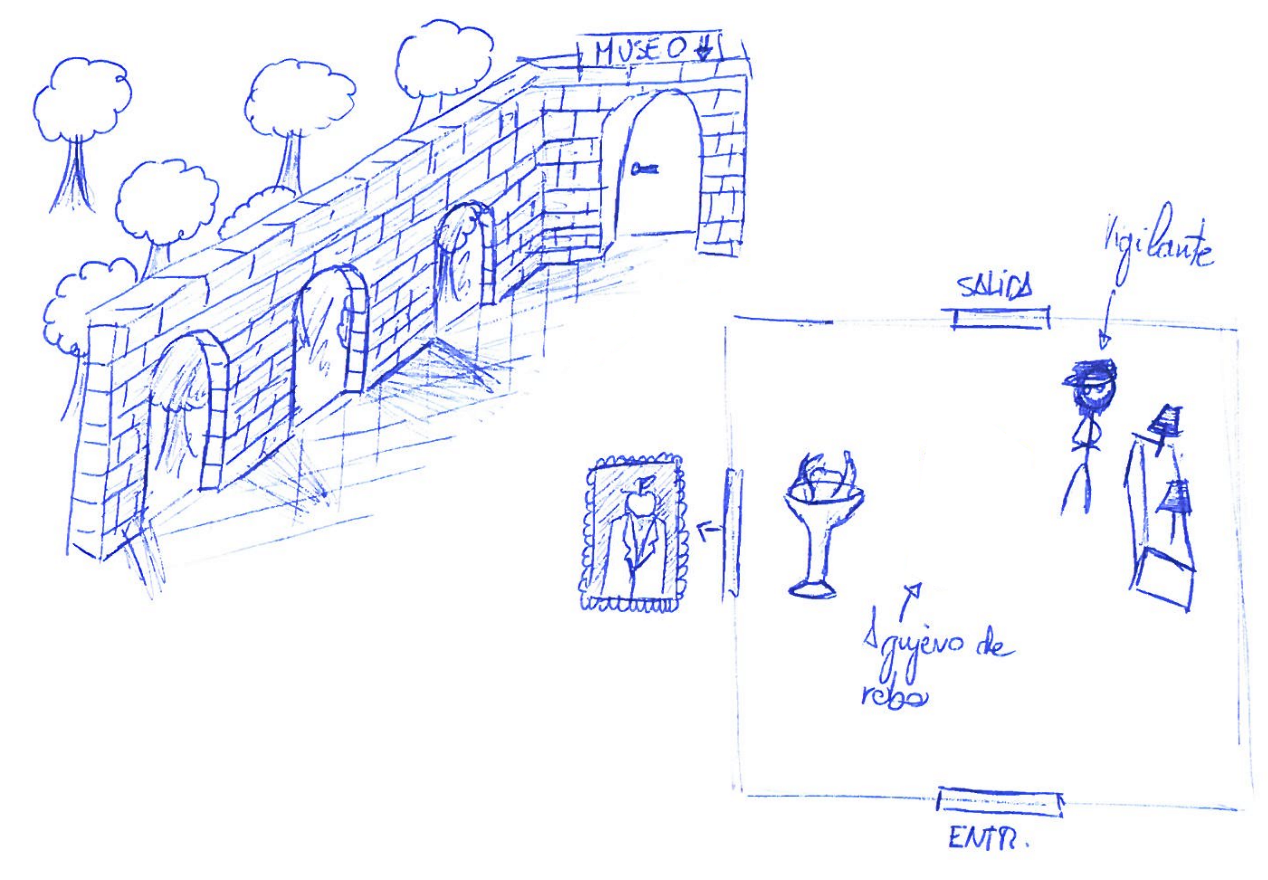 MUSEO
Vigilante
SALIDA
Agujero de
robo
ENTR.